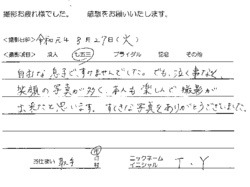 撮影お疲れ様でした。 感想をお願いいたします。
撮影日時 令和元年 8月27日(火)
撮影項目 成人 七五三 ブライダル 記念 その他
自由な息子ですみませんでした。でも、泣く事なく
笑顔の写真が多く、本人も楽しんで撮影が
出来たと思います。すてきな写真をありがとうございました。
お住まい 市 村 ニックネーム イニシャル T.Y